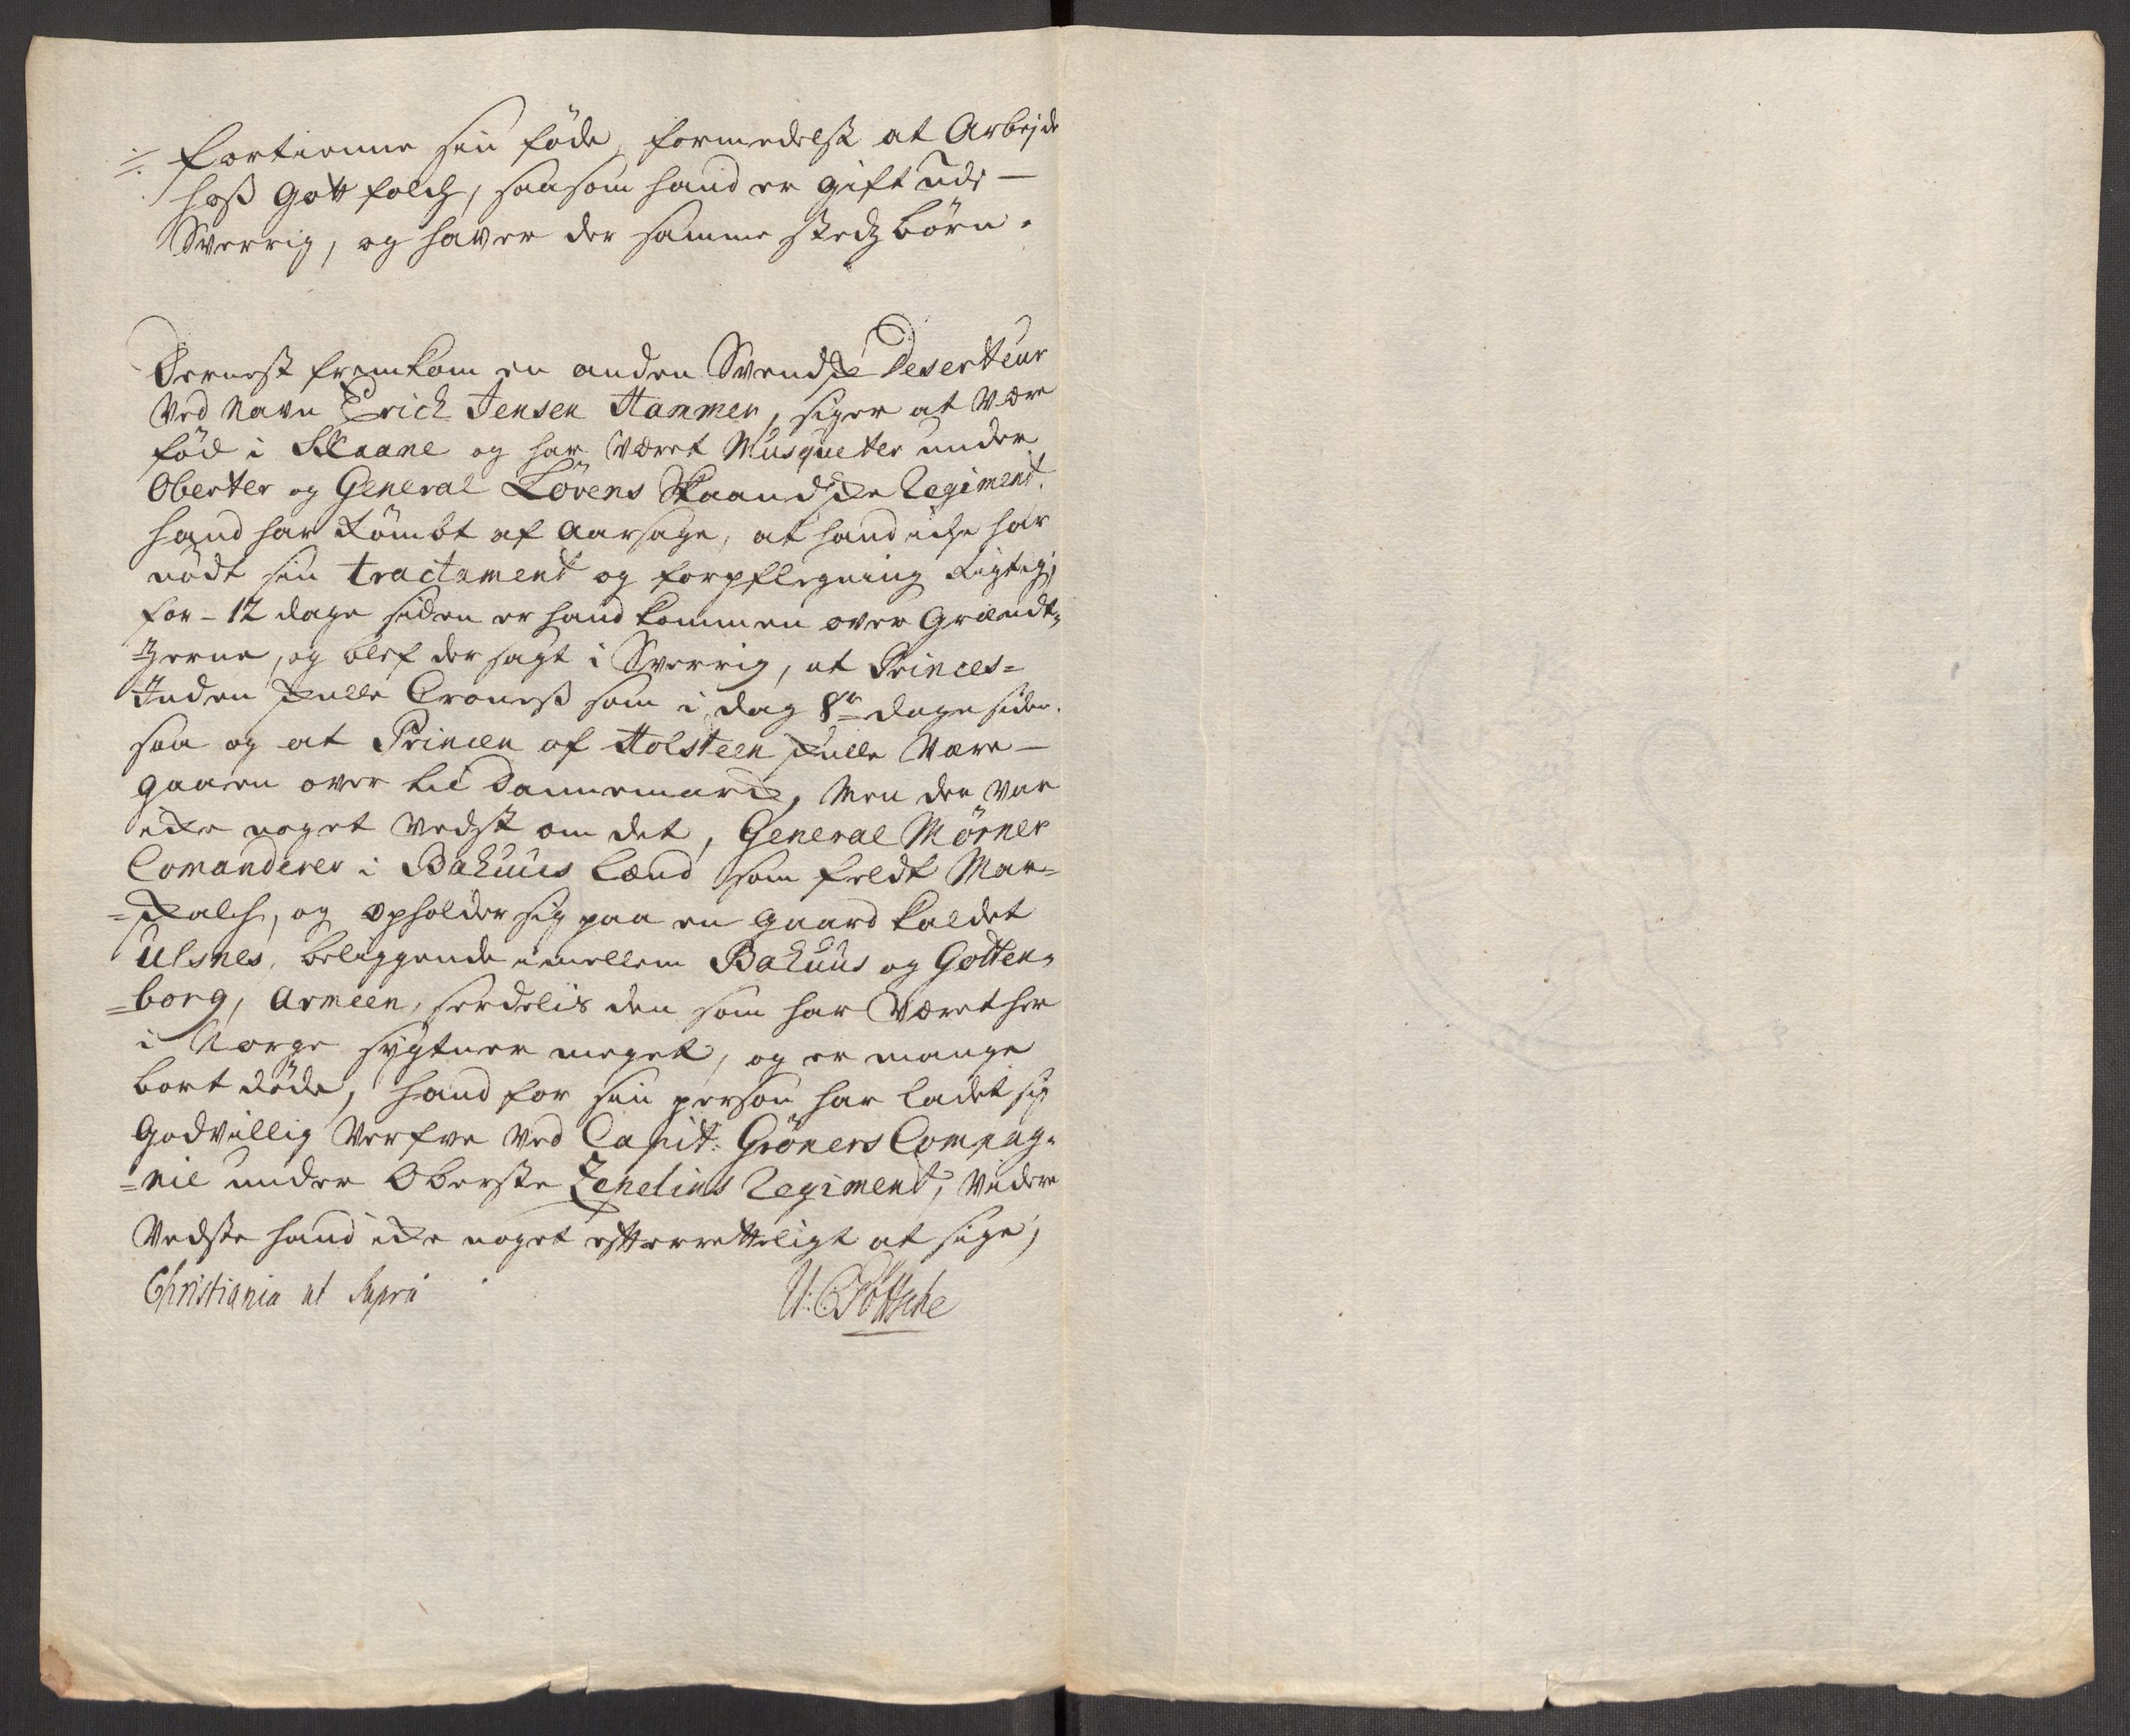 fortienne sin föde, formedelst at Arbejde
hoß Gott folch, saasom hand er gift udi
Sverrig, og haver der samme stedz börn.
Dernest fremkom en anden Svendske Deserteur
Ved Navn Erich Jensen Hammer, siger at være
föd i Skaane og har Været Musqueter under
Oberster og General Lövens Skaandske Regiment.
hand har Römbt af Aarsage, at hand iche har
nödt sin tractament og forpflegning Rigtig,
for - 12 dage siden er hand kommen over Grændt=
=zerne, og blef der sagt i Sverrig, at Princes=
Inden skulle Croness som i dag 8te dage siden.
saa og at Princen af Holsteen skulle Være
gaaen over til Dannemarck, Men der Var
icke noget Vedst om det, General Mörner
Comanderer i Bahuus Lænd som feldt Mar=
=skalch, og opholder sig paa en gaard kaldet
Ulsnes, beliggende imellem Bahuus og Gotten=
=borg, Armeen, serdelis den som har Været her
i Norge sygtner meget, og er mange
bort döde, hand for sin person har ladet sig
Godvillig Verfve Ved Capit: Gröners Compag=
=nie under Oberste Zepelins Regiment, Videre
Vedste hand icke noget efterretteligt at sige,
Christiania ut Supra
U: C: Pöttsche